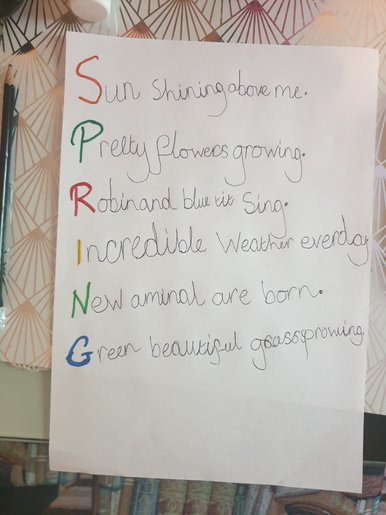 Sun Shining above me.
Pretty flowers growing.
Robin and blue tit Sing.
Incredible Weather everday
New aminal are born.
Green beautiful grass growing